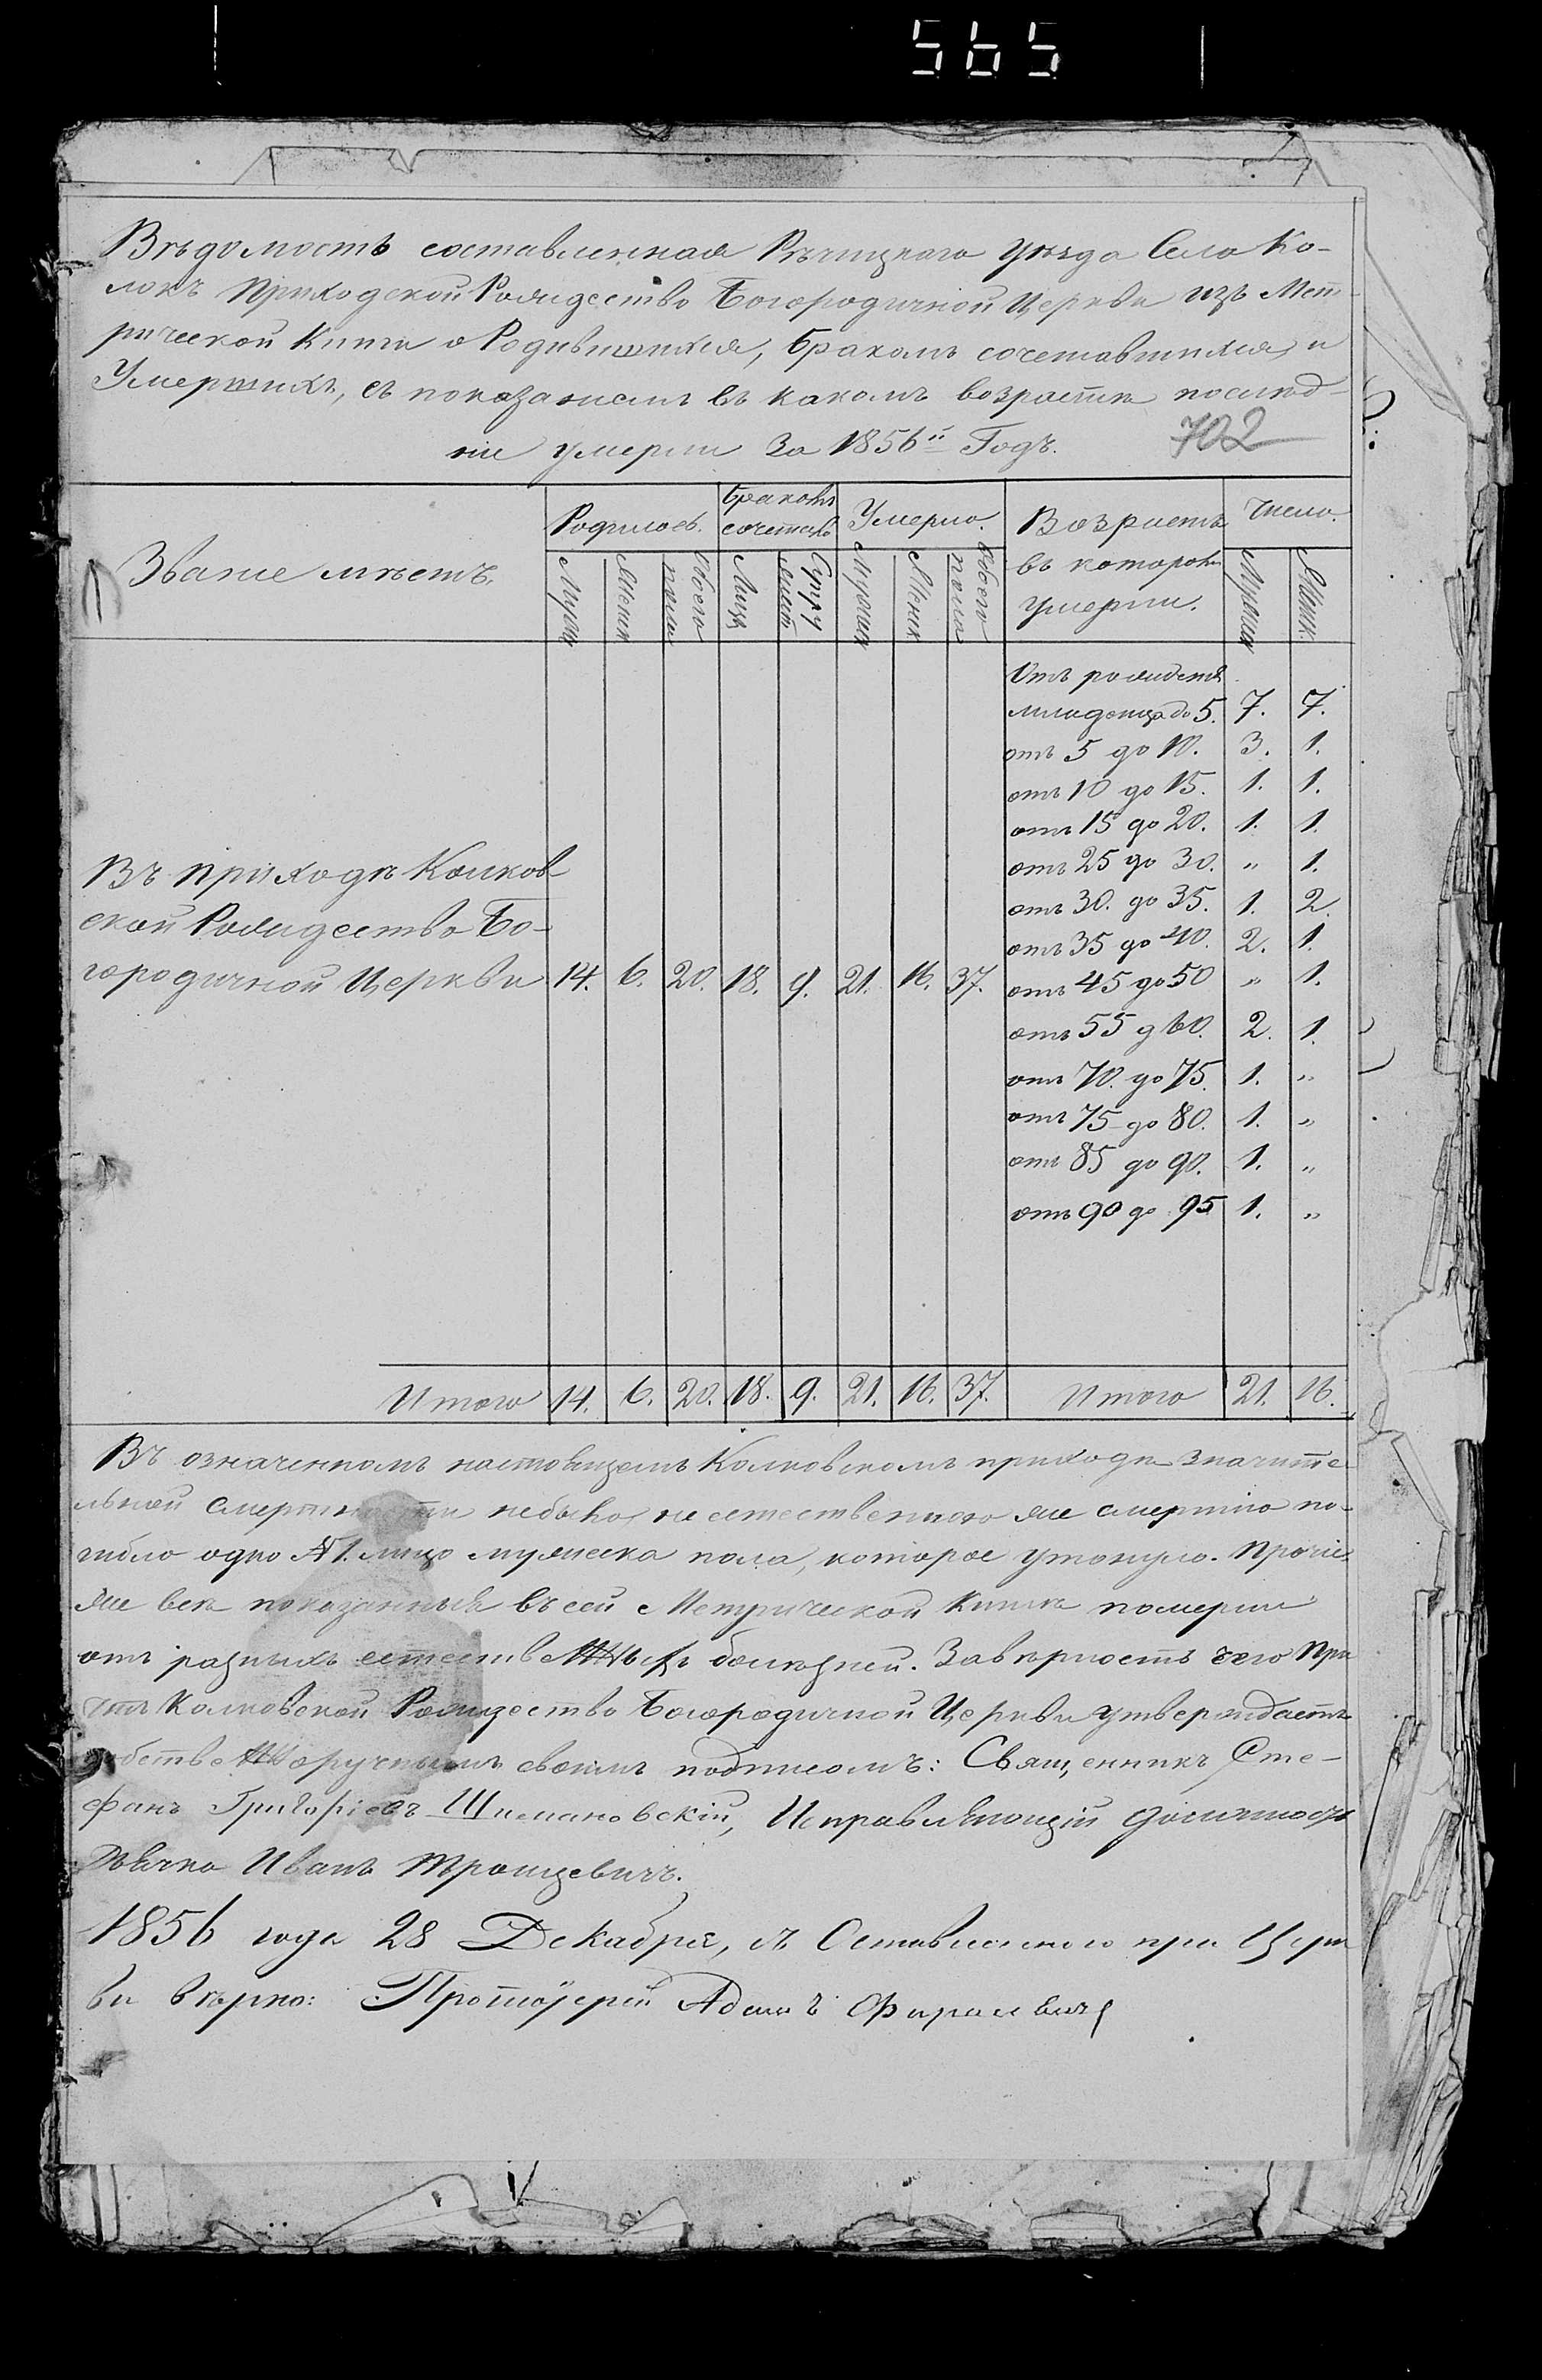 565
Вѣдомость составленная Рѣчицкаго уѣзда Села Ко-
локъ Приходской Рождество Богородичной Церкви изъ Мет-
рической Книги о Родившихся, бракомъ сочетавшихся, и
Умершихъ, съ показаниемъ въ какомъ возрастѣ послѣд-
ніе умерли За 1856й Годъ.
702
Званіе мѣстъ.
Родилось.
Браковъ
сочетано
Умерло.
Возрастъ
въ которомъ
умерли.
Число.
Мужск
Женск
Обоего
пола
Лицъ
Супру
жест
Мужск
Женск
Обоего
пола
Мужск
Женск.
Отъ рожденія
младенца до 5. 7. 7.
отъ 5 до 10. 3. 1.
отъ 10 до 15. 1. 1.
отъ 15 до 20. 1. 1.
отъ 25 до 30. „ 1.
отъ 30. до 35. 1. 2.
отъ 35 до 40. 2. 1.
отъ 45 до 50 „ 1.
отъ 55 д 60. 2. 1.
отъ 70. до 75. 1. „
отъ 75 до 80. 1. „
отъ 85 до 90. 1. „
отъ 90 до 95 1. „
Въ приходѣ Колков-
ской Рождество Бо-
городичной Церкви 14. 6. 20. 18. 9. 21. 16. 37.
Итого 14. 6. 20. 18. 9. 21. 16. 37. Итого 21. 16.
Въ означенномъ настоящемъ Колковскомъ приходѣ значите-
льной смертности небыло, не естественною же смертію по-
гибло одно 1. лицо мужеска пола, которое утонуло. Прочіе
же всѣ показанныя въ сей Метрической Книгѣ померли
отъ разныхъ естественныхъ болѣзней. Завѣрность чего При
чтъ Колковской Рождество Богородичной Церкви утверждаетъ
собственноручнымъ своимъ подписомъ: Священникъ Сте-
фанъ Григоріевъ Шимановскій, Исправляющій Должность
Дьячка Иванъ Троицевичъ.
1856 года 28 Декабря, съ Оставленною при Церк
ви вѣрно: Протоіерей Адамъ